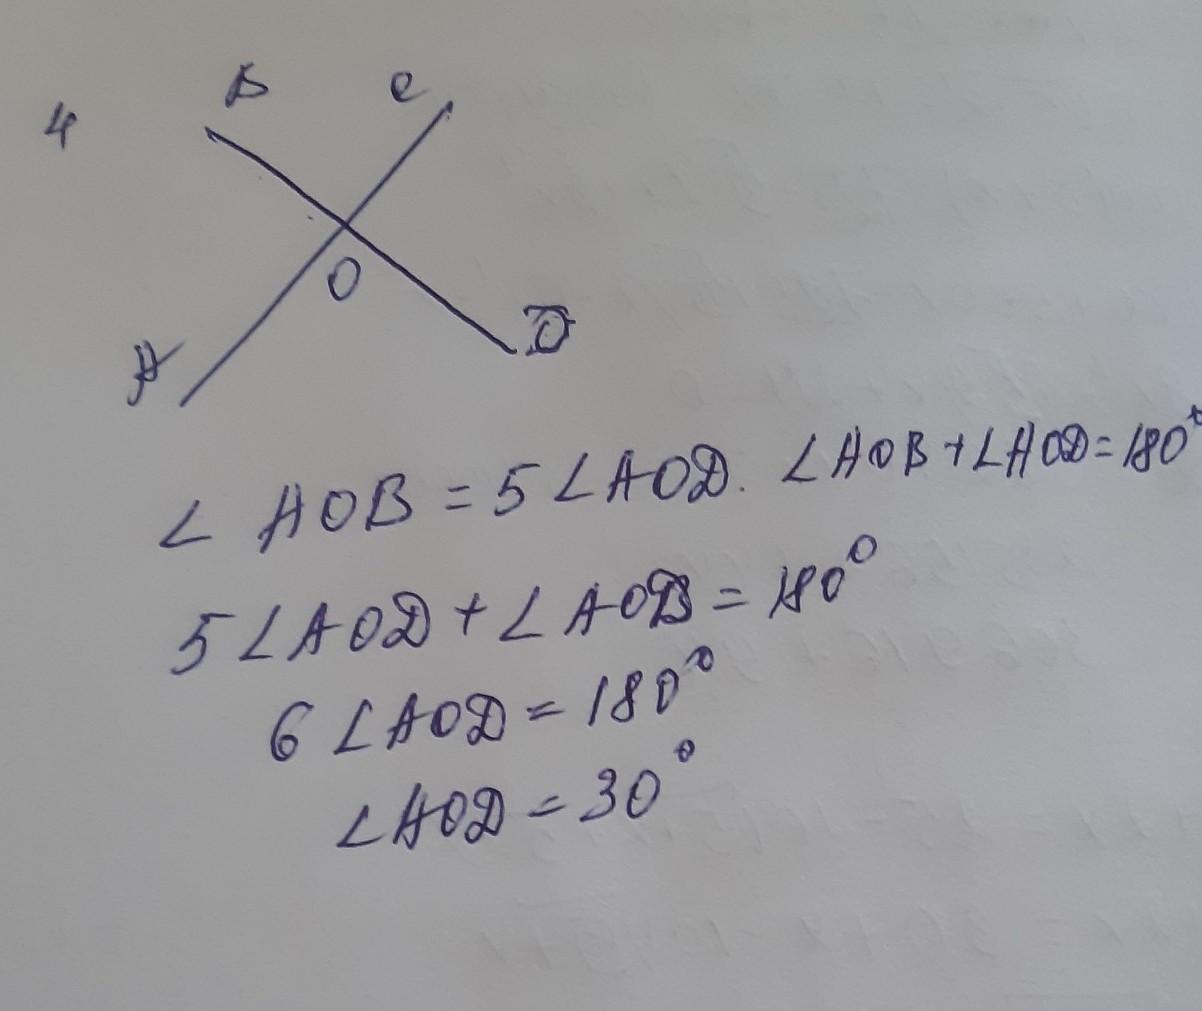 4
B C
O
A D
∠ AOB = 5 ∠AOD. ∠AOB + ∠AOD = 180°
5 ∠AOD + ∠AOD = 180°
6 ∠AOD = 180°
∠AOD = 30°